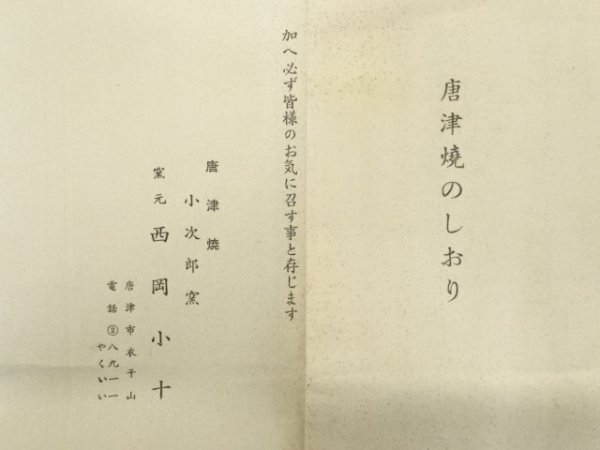 唐津燒のしおり
加へ必ず皆様のお気に召す事と存じます
唐津燒
小次郎窯
窯元 西岡小十
唐津市衣干山
電話②八九一一
やくいい